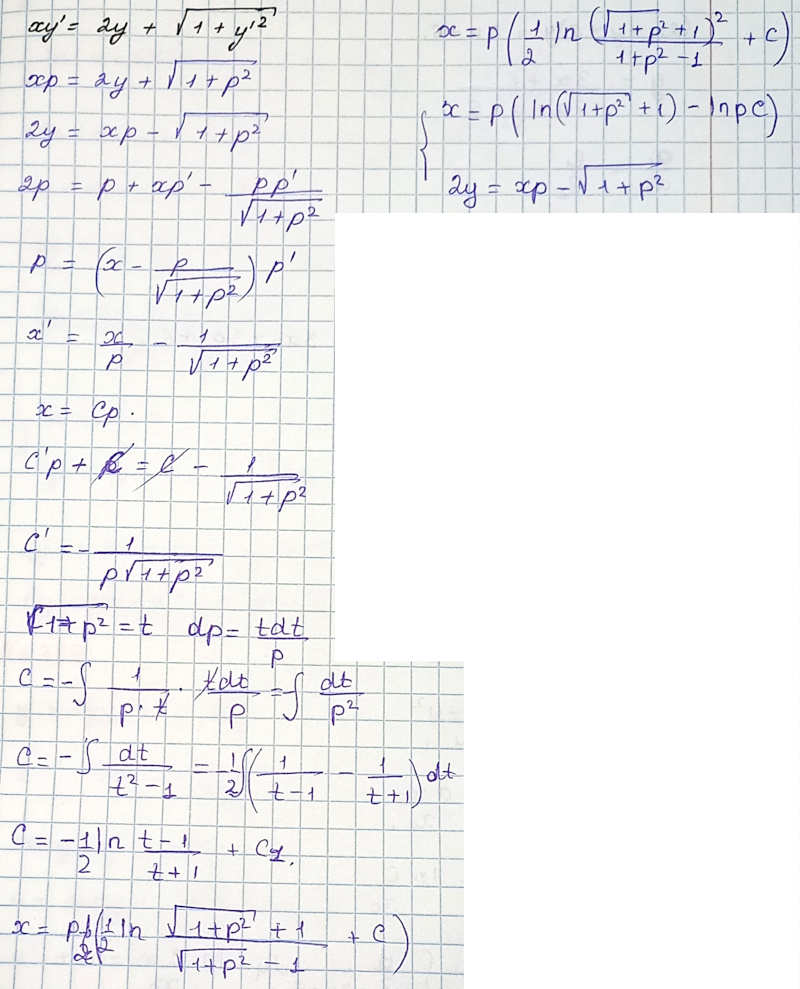 xy' = 2y + √(1 + y'²)
xp = 2y + √(1 + p²)
2y = xp − √(1 + p²)
2p = p + xp' − pp'/√(1 + p²)
p = (x − p/√(1 + p²)) p'
x' = x/p − 1/√(1 + p²)
x = Cp.
C'p + C = C − 1/√(1 + p²)
C' = − 1/(p√(1 + p²))
√(1 + p²) = t dp = tdt/p
C = −∫ 1/(p·t) · tdt/p = ∫ dt/p²
C = −∫ dt/(t² − 1) = −1/2 ∫(1/(t − 1) − 1/(t + 1)) dt
C = −1/2 ln (t − 1)/(t + 1) + C1.
x = p(1/2 ln (√(1 + p²) + 1)/(√(1 + p²) − 1) + C)
x = p(1/2 ln (√(1 + p²) + 1)²/(1 + p² − 1) + C)
{ x = p(ln(√(1 + p²) + 1) − ln pC)
2y = xp − √(1 + p²)